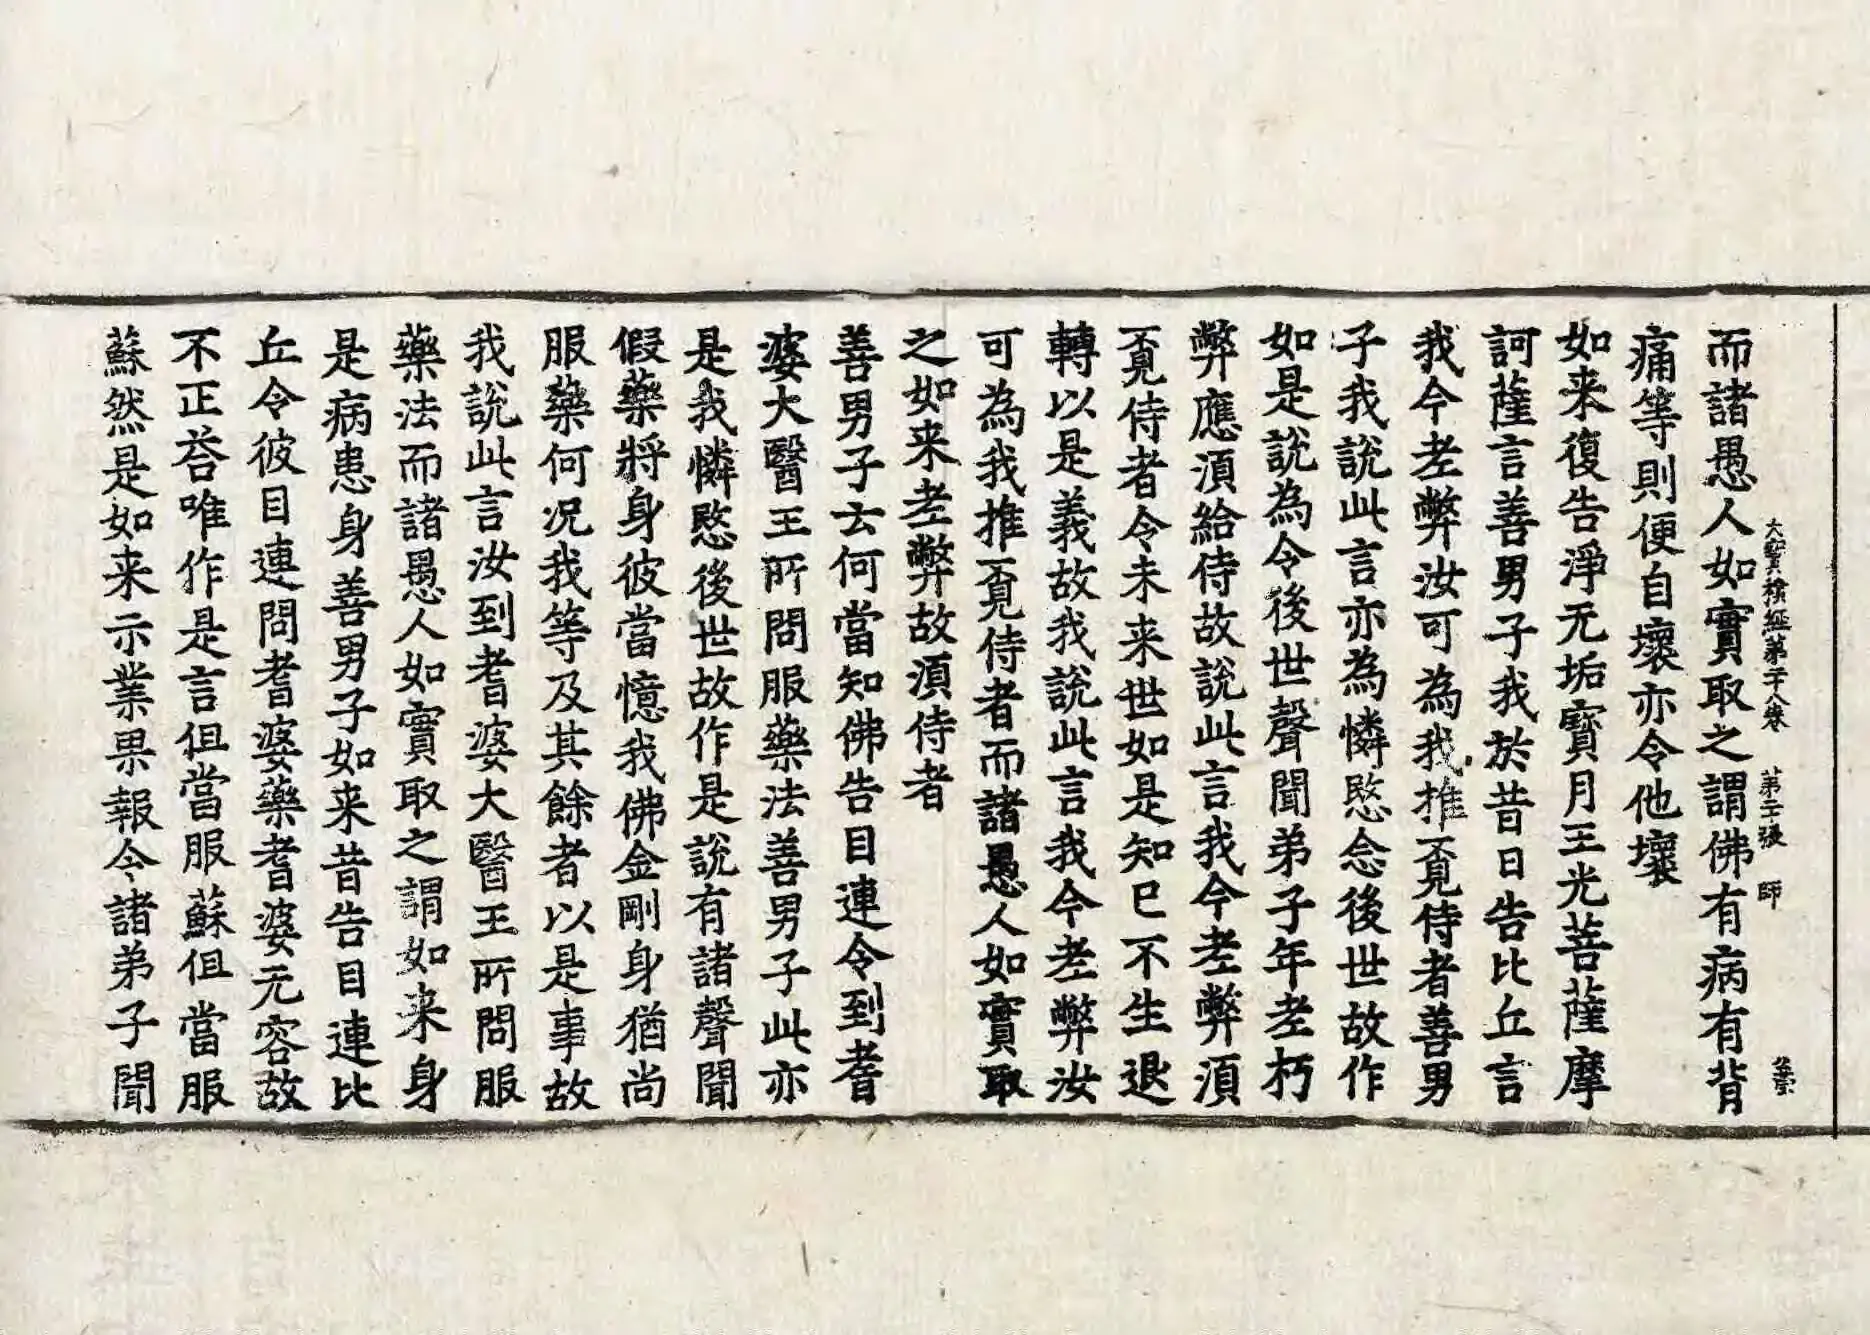 大寶積經第二十八卷 第二十張 師
而諸愚人如實取之謂佛有病有背
痛等則便自壞亦令他壞
如来復告淨无垢寳月王光菩薩摩
訶薩言善男子我於昔日告比丘言
我今老弊汝可為我推覓侍者善男
子我說此言亦為憐愍念後世故作
如是說為令後世聲聞弟子年老朽
弊應湏給侍故說此言我今老弊湏
覓侍者令未来世如是知已不生退
轉以是義故我說此言我今老弊汝
可為我推覓侍者而諸愚人如實取
之如来老弊故湏侍者
善男子云何當知佛告目連令到耆
婆大醫王所問服藥法善男子此亦
是我憐愍後世故作是說有諸聲聞
假藥將身彼當憶我佛金剛身猶尚
服藥何况我等及其餘者以是事故
我說此言汝到耆婆大醫王所問服
藥法而諸愚人如實取之謂如来身
是病患身善男子如来昔告目連比
丘令彼目連問耆婆藥耆婆无容故
不正荅唯作是言但當服蘇但當服
蘇然是如来示業果報令諸弟子聞